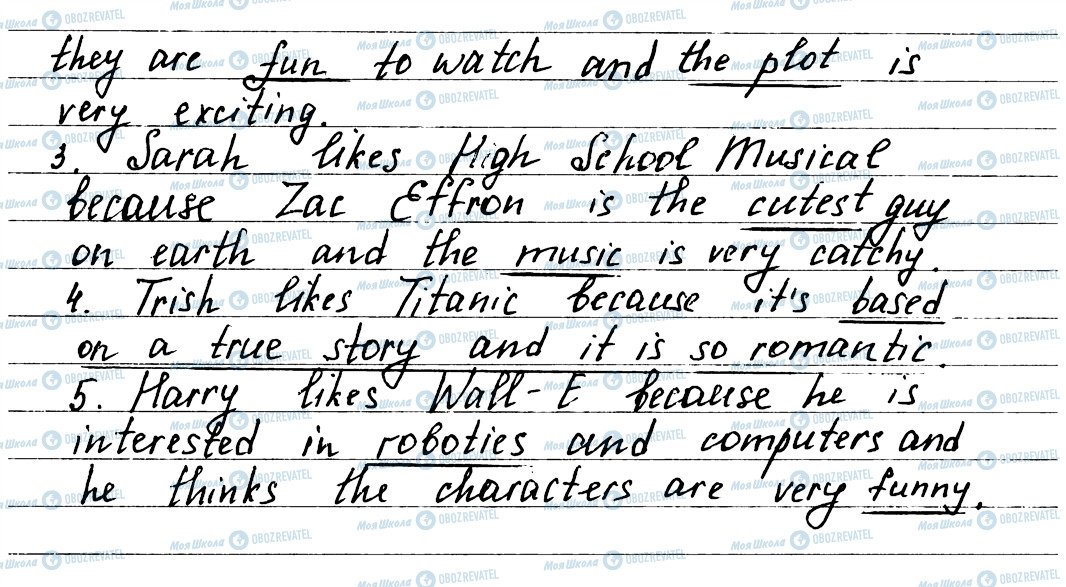 they are fun to watch and the plot is
very exciting.
3. Sarah likes High School Musical
because Zac Effron is the cutest guy
on earth and the music is very catchy.
4. Trish likes Titanic because it's based
on a true story and it is so romantic.
5. Harry likes Wall-E because he is
interested in roboties and computers and
he thinks the characters are very funny.